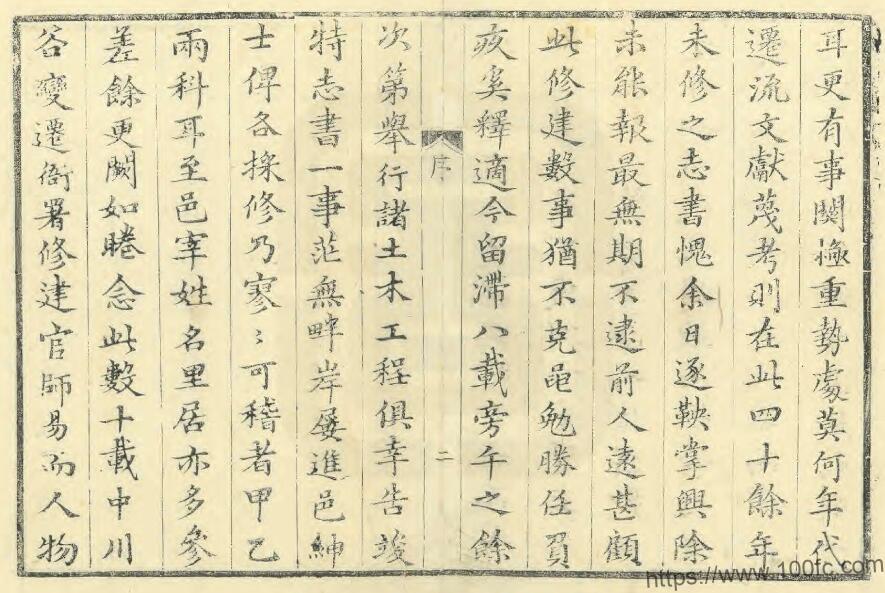 耳更有事關極重勢處莫何年代
遷流文獻蔑考則在此四十餘年
未修之志書愧余日逐鞅掌興除
未能報最無期不逮前人遠甚顧
此修建數事猶不克黽勉勝任負
疚奚釋適今留滯八載旁午之餘
次第舉行諸土木工程俱幸告竣
序
二
特志書一事茫無畔岸屢進邑紳
士俾各採修乃寥〻可稽者甲乙
兩科耳至邑宰姓名里居亦多參
差餘更闕如睠念此數十載中川
谷變遷衙署修建官師易而人物
https://www.100fc.com